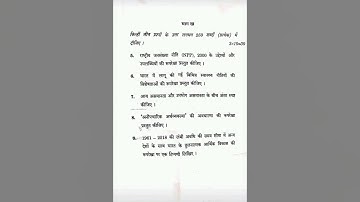 भाग ख
किन्हीं तीन प्रश्नों के उत्तर लगभग 250 शब्दों (प्रत्येक) में
दीजिए । 3×10=30
5. राष्ट्रीय जनसंख्या नीति (NPP), 2000 के उद्देश्यों और
उपलब्धियों की रूपरेखा प्रस्तुत कीजिए ।
6. भारत में लागू की गई विभिन्न रोजगार नीतियों की
विशेषताओं की रूपरेखा प्रस्तुत कीजिए ।
7. आय असमानता और उपभोग असमानता के बीच अंतर स्पष्ट
कीजिए ।
8. 'अनौपचारिक अर्थव्यवस्था' की अवधारणा की रूपरेखा
प्रस्तुत कीजिए ।
9. 1961 – 2018 की लंबी अवधि की समय सीमा में अन्य
देशों के साथ भारत के तुलनात्मक आर्थिक विकास की
रूपरेखा पर एक टिप्पणी लिखिए ।